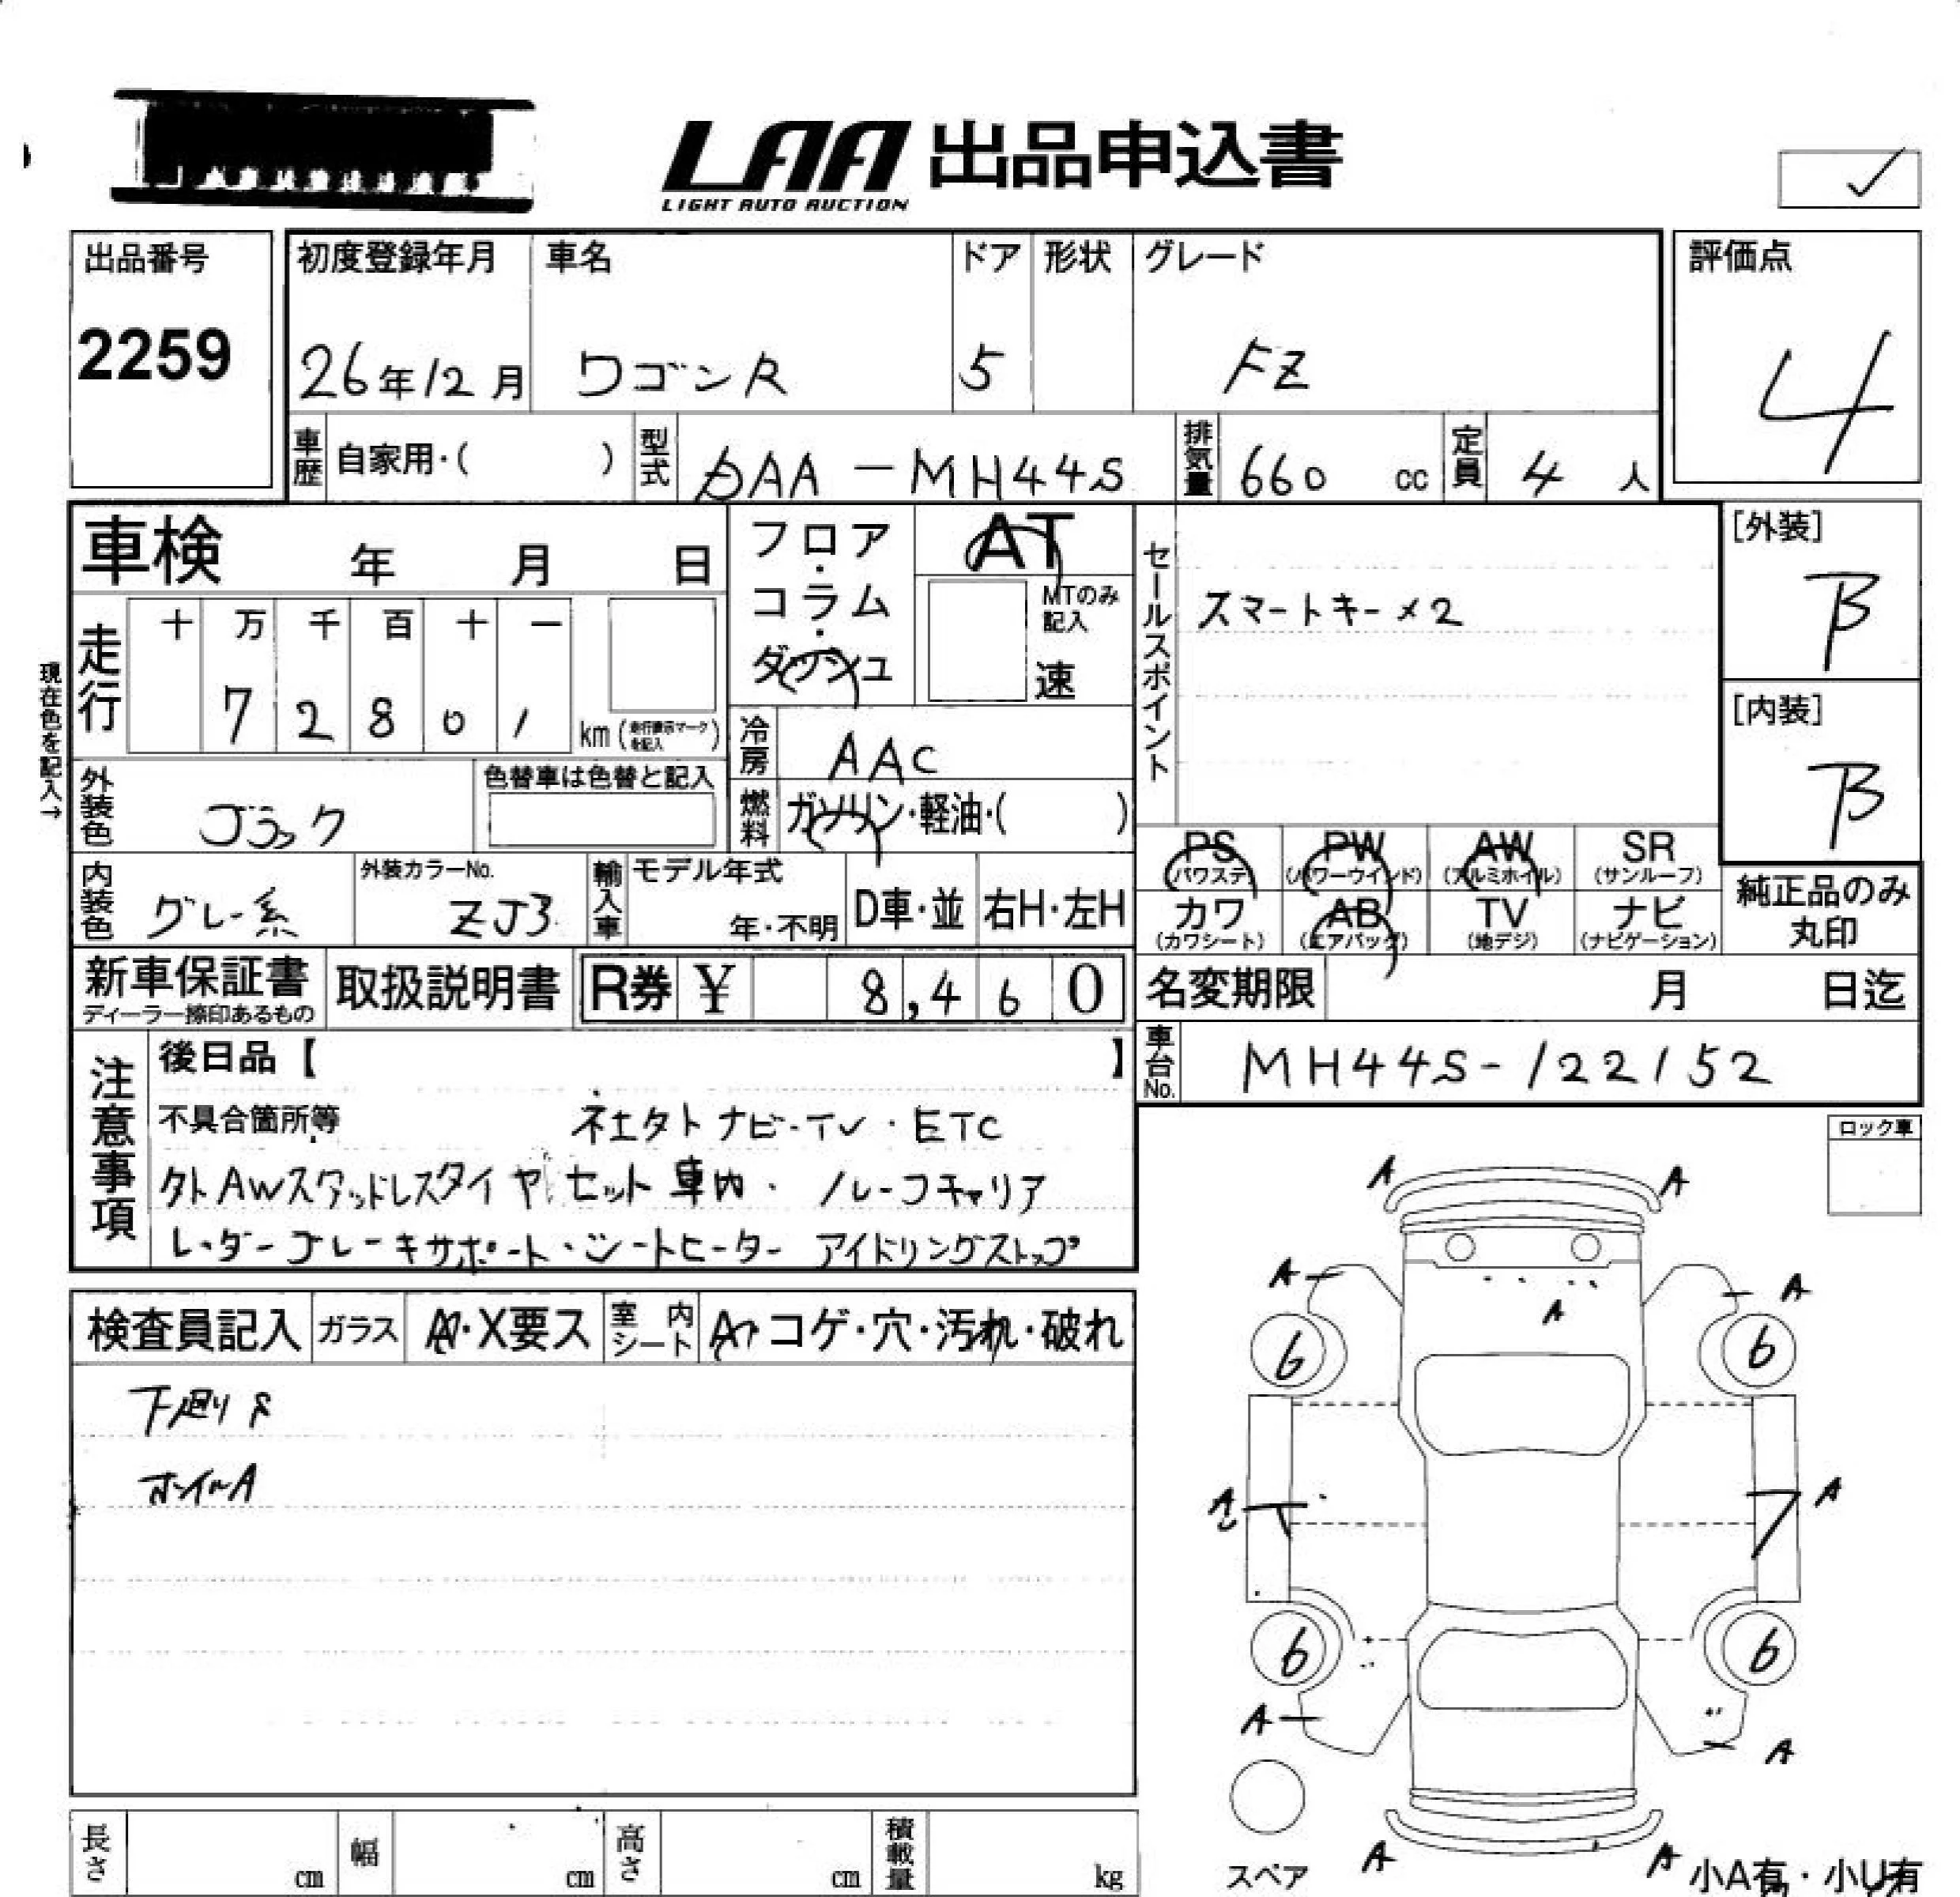 LAA 出品申込書
LIGHT AUTO AUCTION
出品番号
2259
初度登録年月 車名 ドア 形状 グレード
26年12月 ワゴンR 5 FZ
評価点
4
車歴 自家用・( ) 型式 DAA-MH44S 排気量 660 cc 定員 4 人
車検 年 月 日
フロア・コラム・ダッシュ
AT
MTのみ記入
速
走行 十 万 千 百 十 一
7 2 8 0 1 km
現在色を記入→
冷房 AAC
外装色 ブラック
色替車は色替と記入
燃料 ガソリン・軽油・( )
内装色 グレー系
外装カラーNo.
ZJ3
輸入車 モデル年式
年・不明 D車・並 右H・左H
セールスポイント
スマートキー×2
[外装]
B
[内装]
B
PS PW AW SR
(パワステ) (パワーウインド) (アルミホイル) (サンルーフ)
カワ AB TV ナビ
(カワシート) (エアバッグ) (地デジ) (ナビゲーション)
純正品のみ
丸印
新車保証書
ディーラー捺印あるもの
取扱説明書 R券 ¥ 8,460
名変期限 月 日迄
車台No. MH44S-122152
注意事項
後日品【 】
不具合箇所等 社外ナビ・TV・ETC
外AWスタッドレスタイヤセット車内・ルーフキャリア
レーダーブレーキサポート・シートヒーター アイドリングストップ
ロック車
検査員記入 ガラス A・X要ス 室内シート A・コゲ・穴・汚れ・破れ
下廻りS
ホイルA
A A
A A
A
6 6
A2 A
6 6
A A
A A
スペア
小A有・小U有
長さ cm 幅 cm 高さ cm 積載量 kg